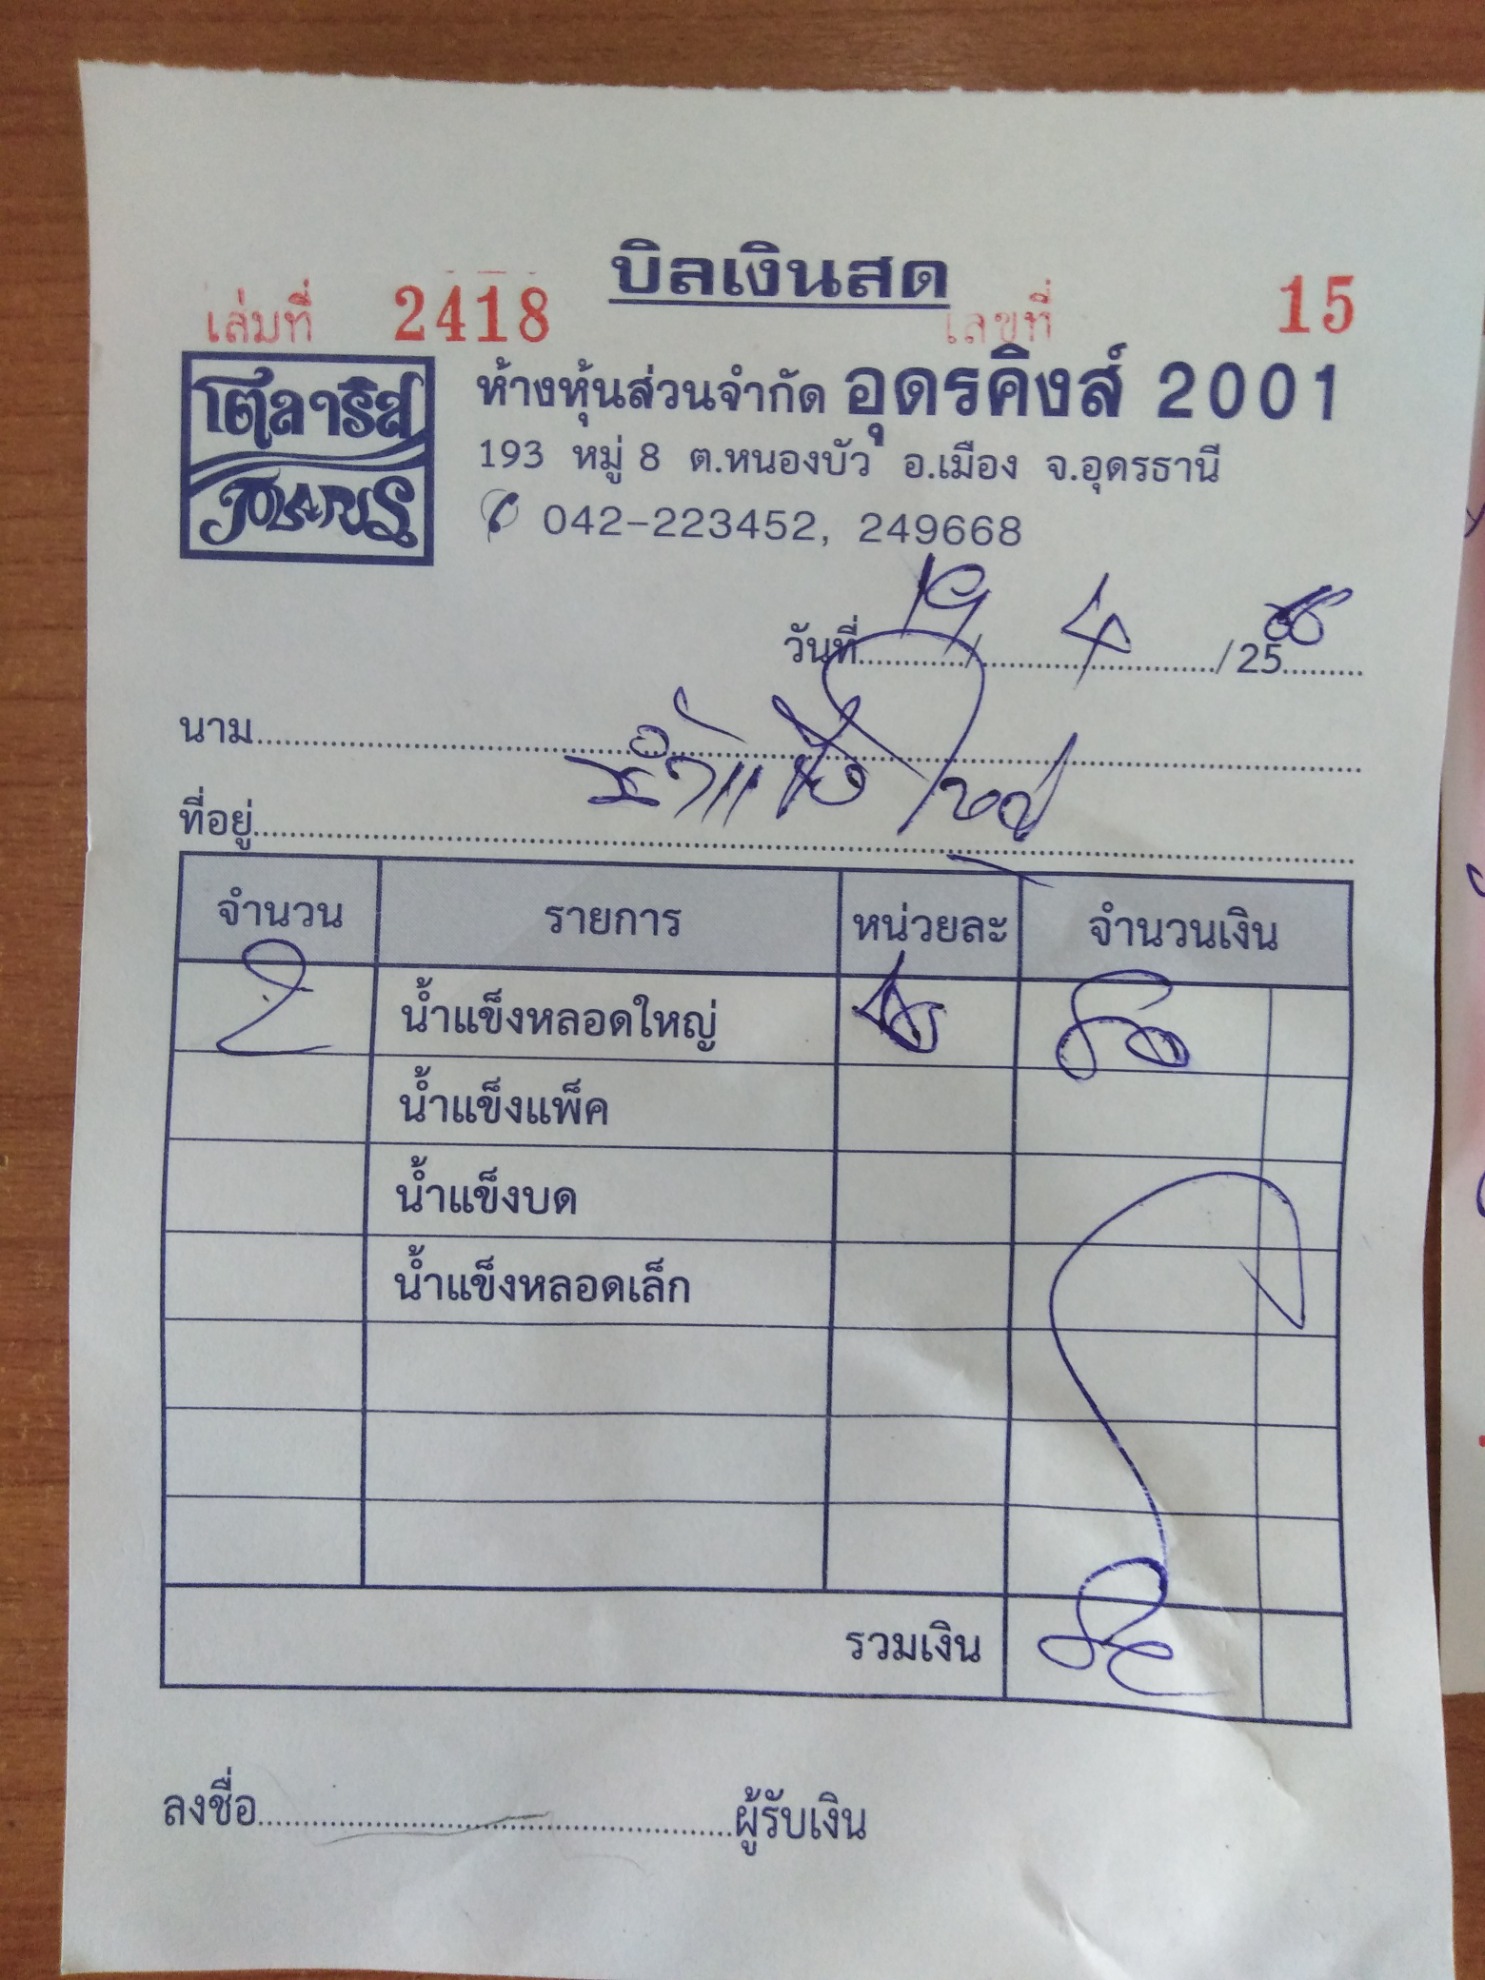 บิลเงินสด
เล่มที่ 2418 เลขที่ 15
โตลาริส
ห้างหุ้นส่วนจำกัด อุดรคิงส์ 2001
193 หมู่ 8 ต.หนองบัว อ.เมือง จ.อุดรธานี
042-223452, 249668
วันที่ 19 / 4 / 25
นาม
ที่อยู่
จำนวน รายการ หน่วยละ จำนวนเงิน
2 น้ำแข็งหลอดใหญ่
น้ำแข็งแพ็ค
น้ำแข็งบด
น้ำแข็งหลอดเล็ก
รวมเงิน
ลงชื่อ ผู้รับเงิน